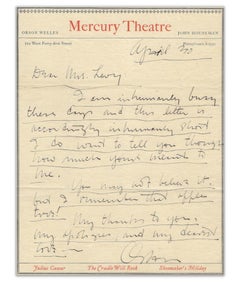 ORSON WELLES
Mercury Theatre
JOHN HOUSEMAN
April
Dear Mrs. Levy
I am inhumanly busy
these days and this letter is
accordingly inhumanly short
I do want to tell you though
how much yours meant to
me.
You may not believe it
but I remember that apple
tree!
My thanks to you.
my apologies, and my dearest
love —
Orson
Julius Caesar
The Cradle Will Rock
Shoemaker's Holiday